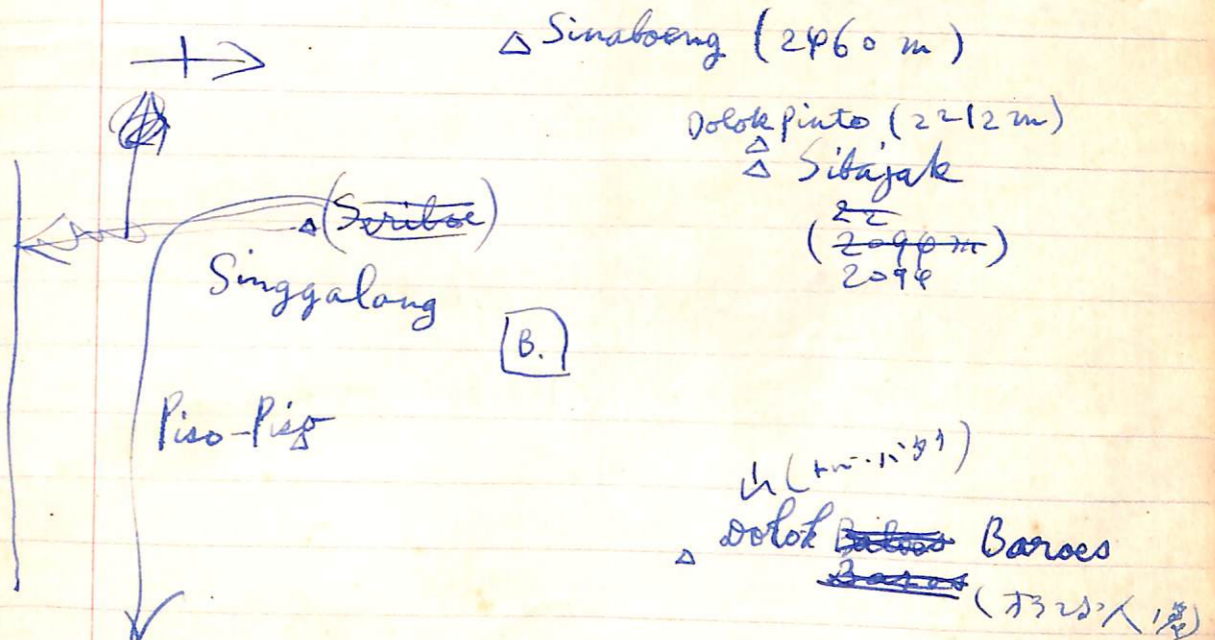 Sinaboeng (2460 m)
Dolok Pinto (2212 m)
Sibajak
22
(2094 m)
2094
(Seriboe)
Singgalang
B.
Piso-Piso
山(トバ・バタク)
Dolok Baroes
Baros
(オランダ人